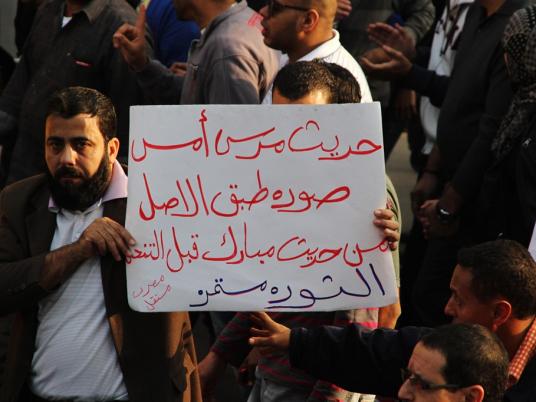 حديث مرسى أمس
صوره طبق الاصل
من حديث مبارك قبل التنحى
الثوره مستمره
مصرى
مستقل